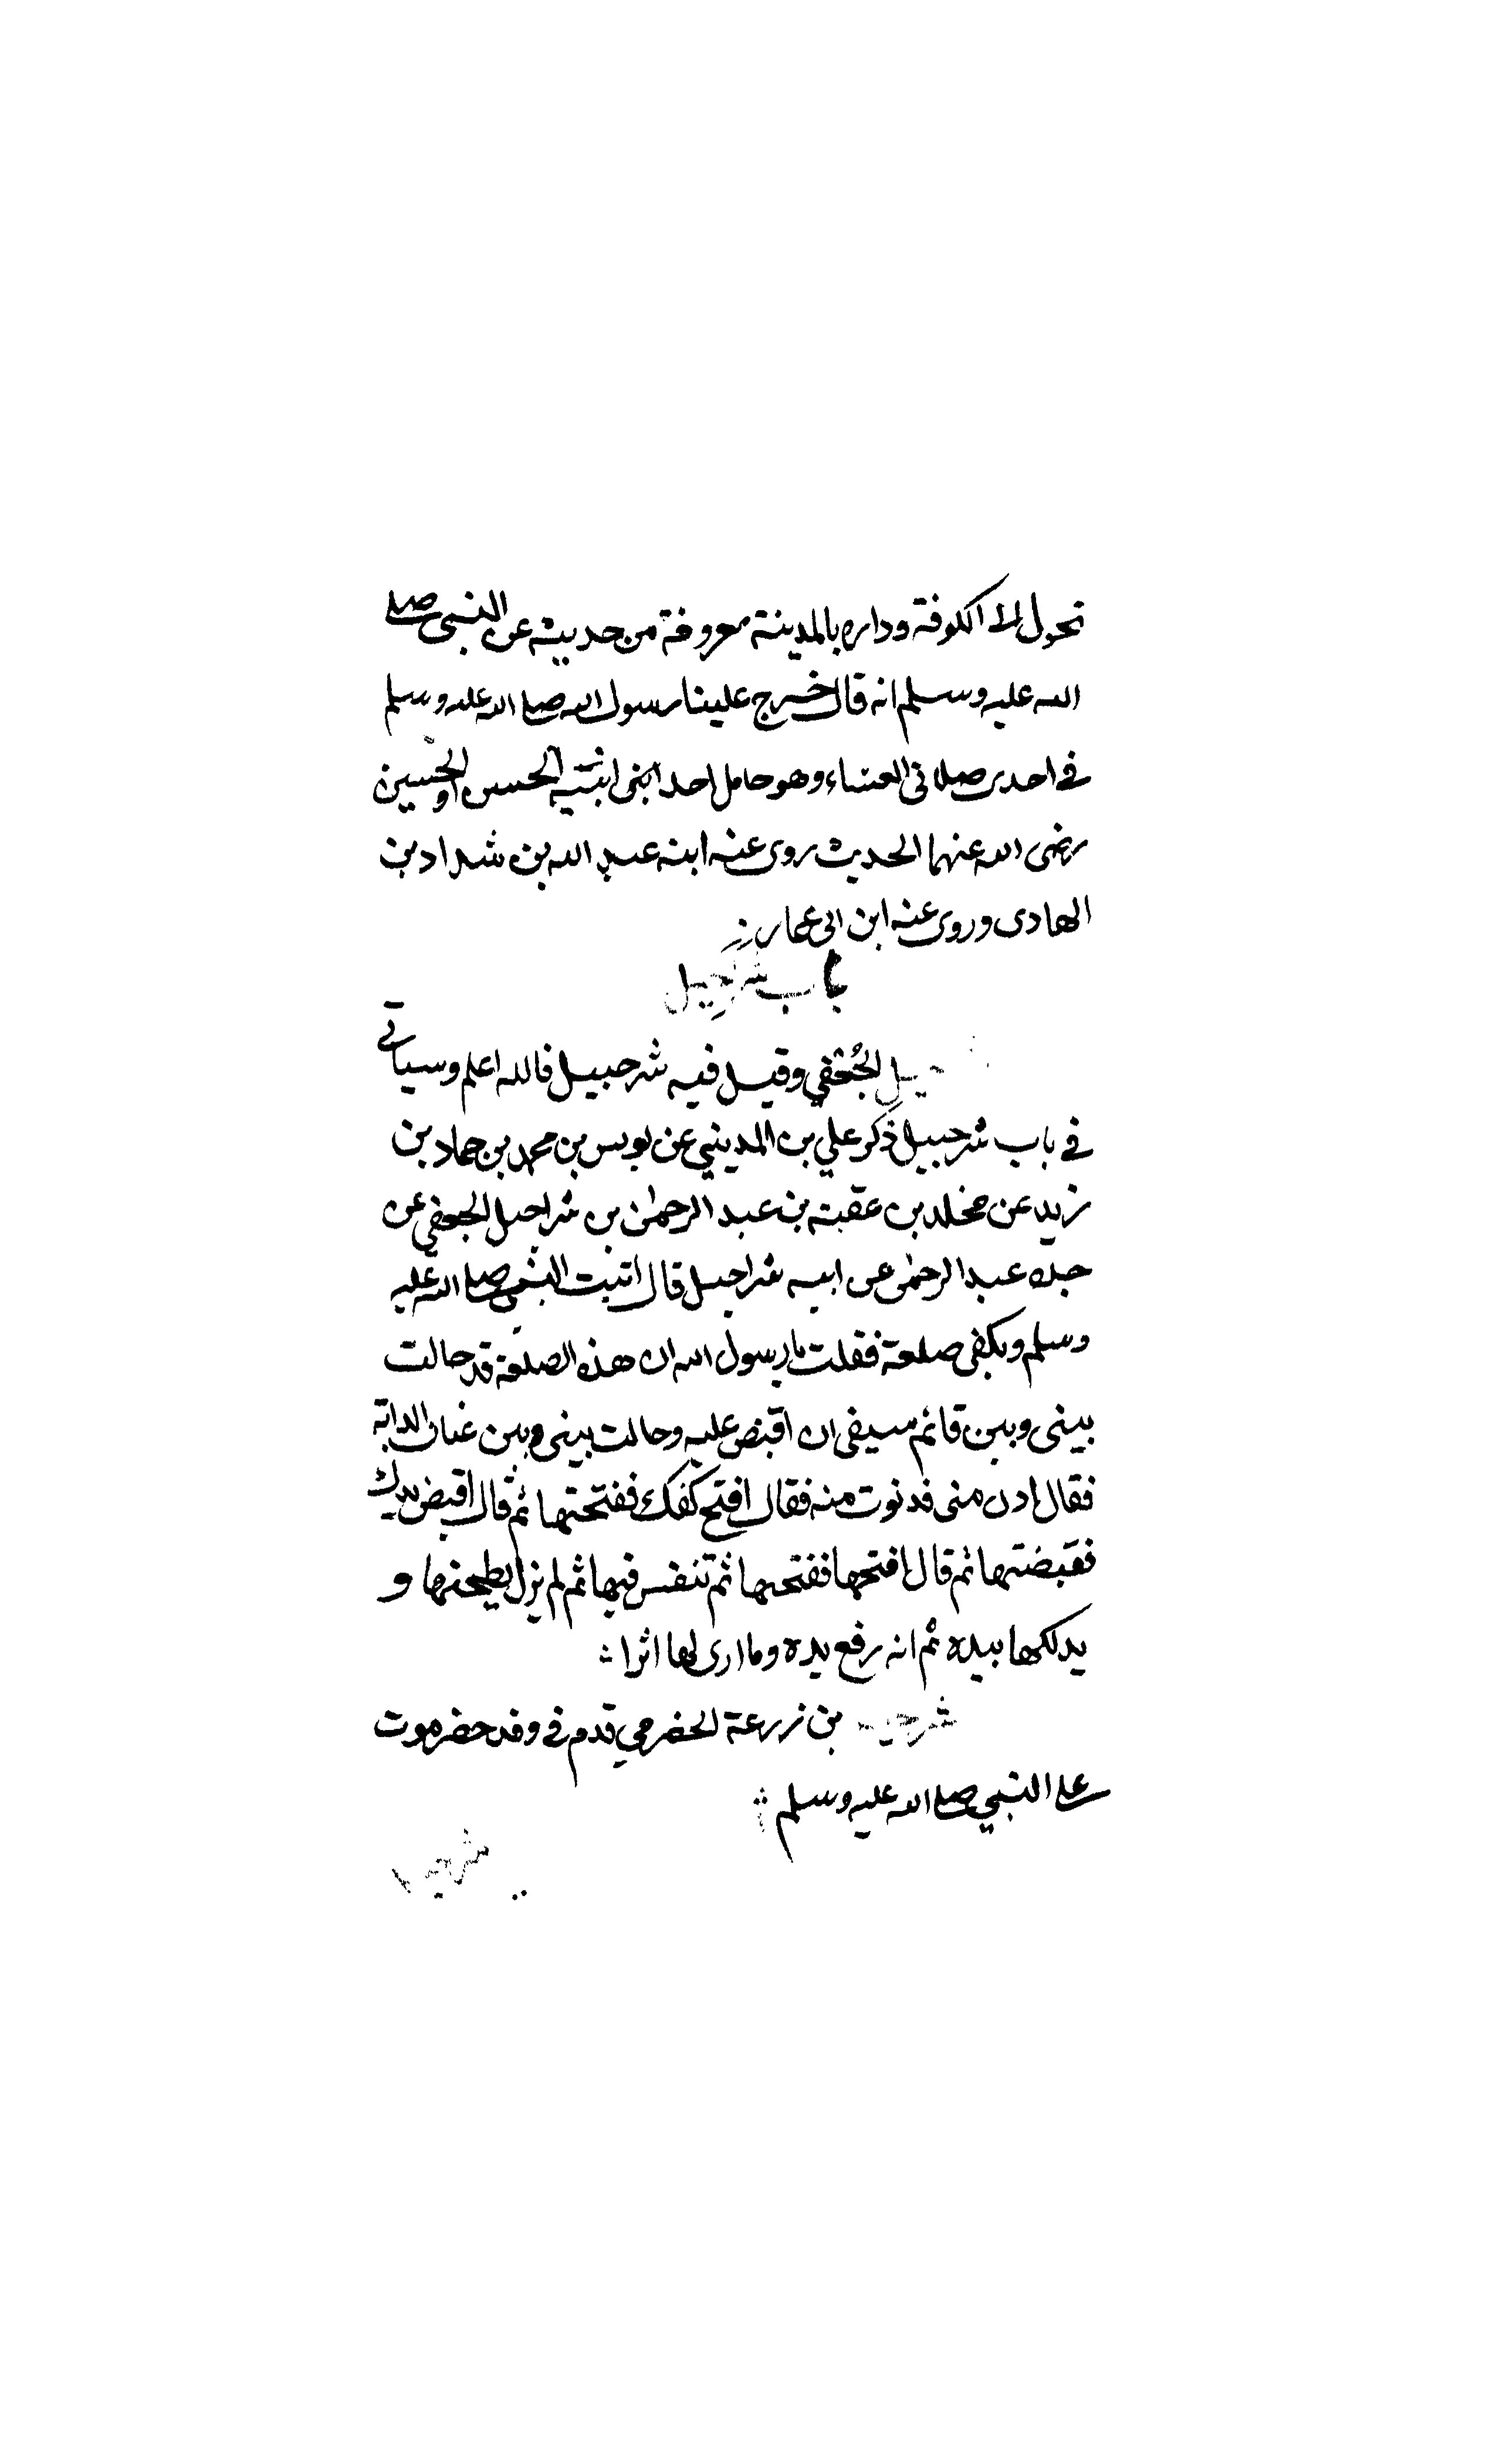 تحول الى الكوفة وداره بالمدينة معروفة من حديثه عن النبى صلى
الله عليه وسلم انه قال خرج علينا رسول الله صلى الله عليه وسلم
فى احدى صلاتى العشاء وهو حامل احد ابنى ابنته الحسن او الحسين
رضى الله عنهما الحديث روى عنه ابنه عبد الله بن شداد بن
الهادى وروى عنه ابن ابى عمار
باب
الجُعفي وقيل فيه شرحبيل فالله اعلم وسياتى
فى باب شرحبيل ذكر علي بن المديني عن يونس بن محمد بن حماد بن
زيد عن مخلد بن عقبة بن عبد الرحمن بن شراحيل الجعفي عن
جده عبد الرحمن عن ابيه شراحيل قال اتيت النبى صلى الله عليه
وسلم وبكفى صلعة فقلت يا رسول الله ان هذه الصلعة قد حالت
بينى وبين قائم سيفى ان اقبض عليه وحالت بينى وبين عنان الدابة
فقال ادن منى فدنوت منه فقال افتح كفك ففتحتها ثم قال اقبض يدك
فقبضتها ثم قال افتحها ففتحتها ثم تنفس فيها ثم لم يزل يطحنها و
يدلكها بيده ثم انه رفع يده وما ارى لها اثرا
بن زرعة الحضرمي قدم فى وفد حضرموت
على النبي صلى الله عليه وسلم